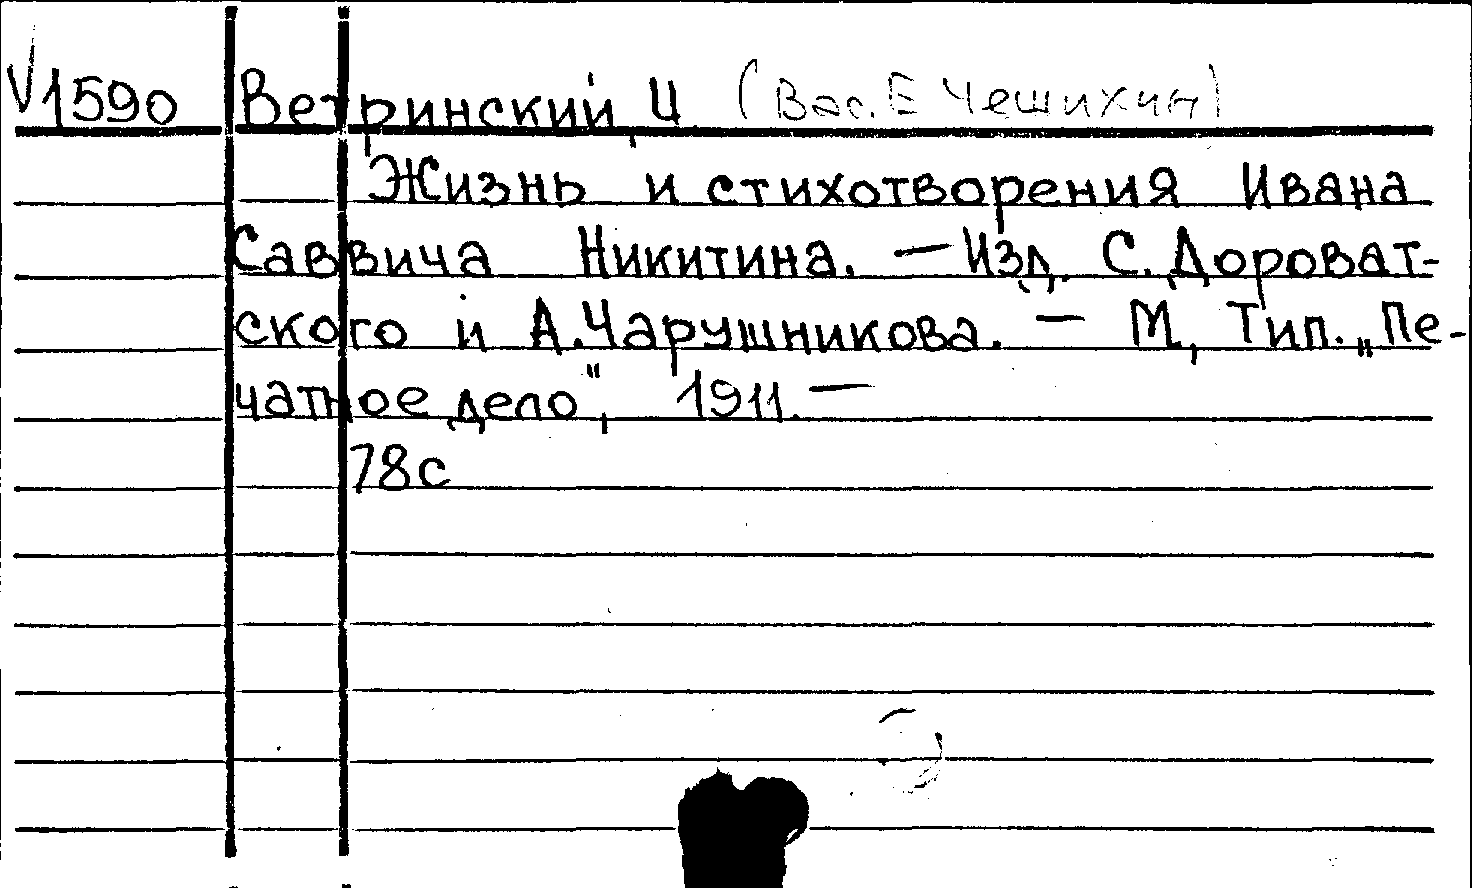 V1590 Ветринский, Ч (Вас. Е Чешихин)
Жизнь и стихотворения Ивана
Саввича Никитина. — Изд. С. Дороват-
ского и А. Чарушникова. — М, Тип. „Пе-
чатное дело", 1911. —
78с